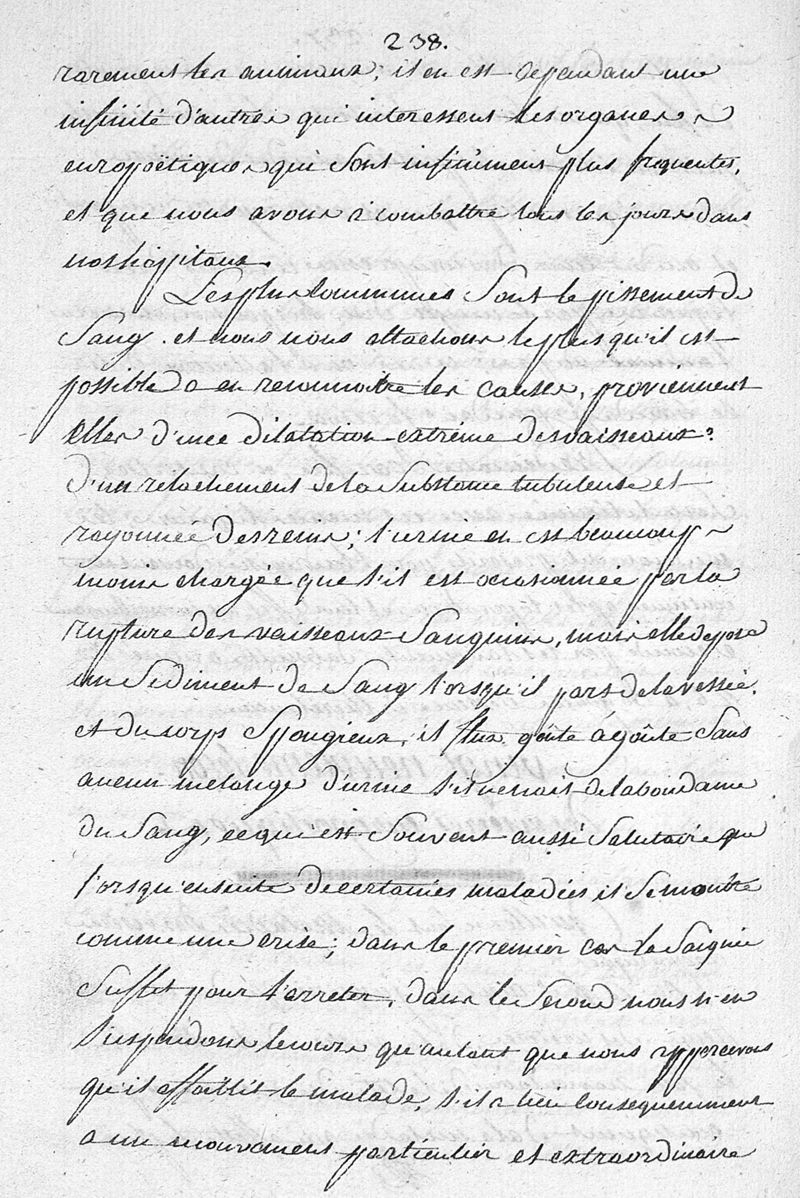 238.
rarement les animaux; il en est cependant une
infinité d'autres qui interessent les organes
europoëtiques qui sont infiniment plus frequentes,
et que nous avons a combattre tous les jours dans
nos hôpitaux.
Les plus communes sont le pissement de
Sang. et nous nous attachons le plus qu'il est
possible a en reconnoitre les causes, proviennent
elles d'une dilatation extrême des vaisseaux?
d'un relachement de la substance tubuleuse et
rayonnée des reins; l'urine en est beaucoup
moins chargée que s'il est occasionnée par la
rupture des vaisseaux Sanguins, mais elle depose
un Sediment de Sang lorsqu'il part de la vessie.
et du corps Spongieux, il flux goûte à goûte Sans
aucun melange d'urine s'il venoit de labondance
du Sang, ce qui est Souvent aussi Salutaire que
lorsqu'ensuite de certaines maladies il Se montre
comme une crise; dans le premier cas la Saignée
Suffit pour l'arreter, dans le Second nous n'en
Suspendons le cours qu'autant que nous appercevons
qu'il affoiblit le malade, s'il a lieu consequemment
a un mouvement particulier et extraordinaire